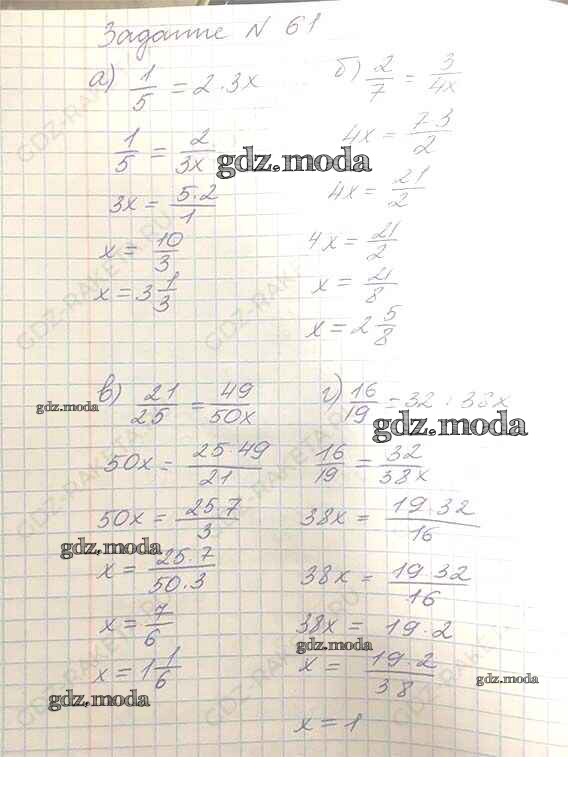 Задание N 61
а) 1/5 = 2 . 3x
1/5 = 2/3x
3x = 5·2/1
x = 10/3
x = 3 1/3
б) 2/7 = 3/4x
4x = 7·3/2
4x = 21/2
4x = 21/2
x = 21/8
x = 2 5/8
в) 21/25 = 49/50x
50x = 25·49/21
50x = 25·7/3
x = 25·7/50·3
x = 7/6
x = 1 1/6
г) 16/19 = 32 : 38x
16/19 = 32/38x
38x = 19·32/16
38x = 19·32/16
38x = 19·2
x = 19·2/38
x = 1
gdz.moda
gdz.moda
gdz.moda
gdz.moda
gdz.moda
gdz.moda
gdz.moda
GDZ-RAKETA.RU
GDZ-RAKETA.RU
GDZ-RAKETA.RU
GDZ-RAKETA.RU